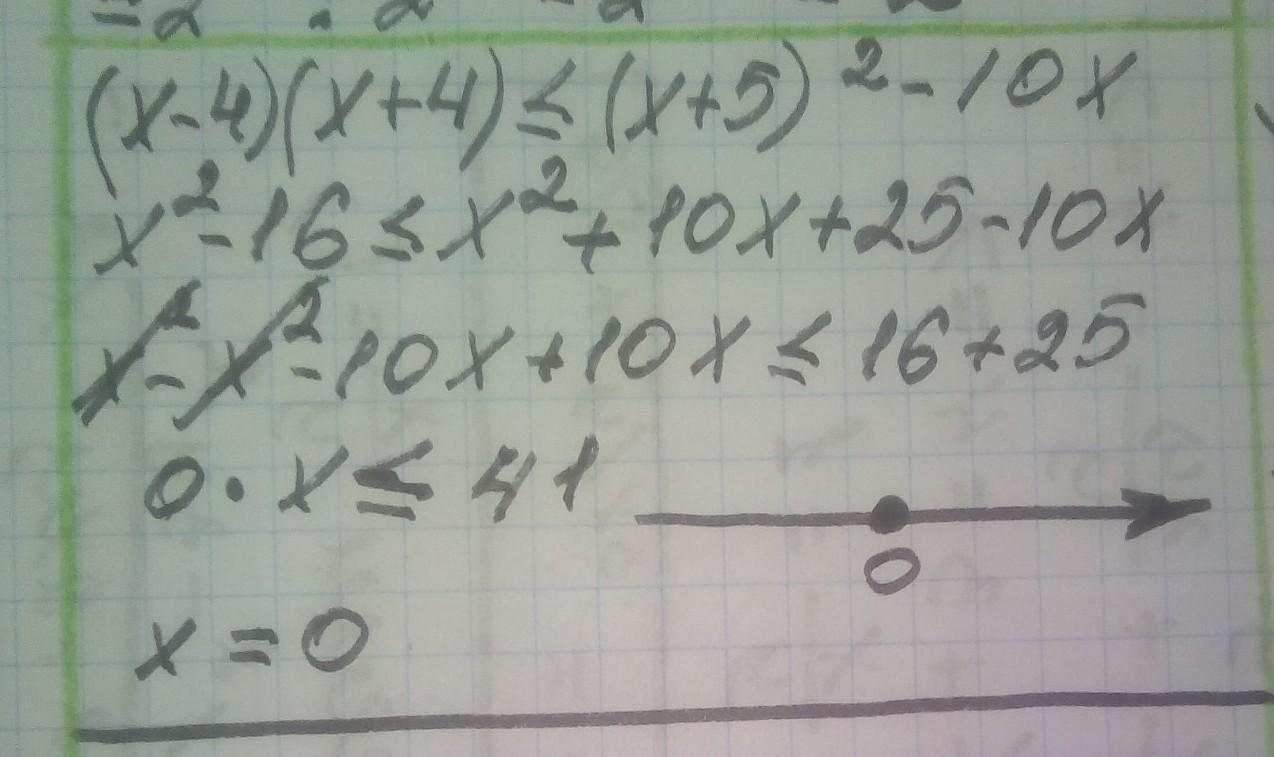 (x-4)(x+4)≤(x+5)²-10x
x²-16≤x²+10x+25-10x
x²-x²-10x+10x≤16+25
0·x≤41
0
x=0